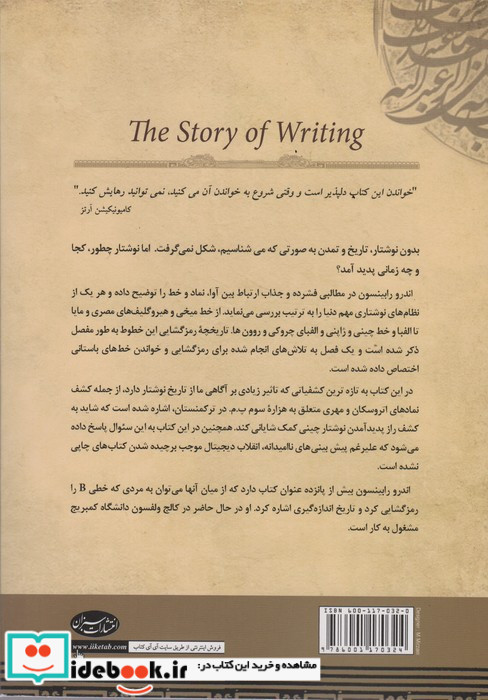 The Story of Writing
"خواندن این کتاب دلپذیر است و وقتی شروع به خواندن آن می کنید، نمی توانید رهایش کنید."
کامیونیکیشن آرتز
بدون نوشتار، تاریخ و تمدن به صورتی که می شناسیم، شکل نمی‌گرفت. اما نوشتار چطور، کجا
و چه زمانی پدید آمد؟
اندرو رابینسون در مطالبی فشرده و جذاب ارتباط بین آوا، نماد و خط را توضیح داده و هر یک از
نظام‌های نوشتاری مهم دنیا را به ترتیب بررسی می‌نماید. از خط میخی و هیروگلیف‌های مصری و مایا
تا الفبا و خط چینی و ژاپنی و الفبای چروکی و روون ها. تاریخچهٔ رمزگشایی این خطوط به طور مفصل
ذکر شده است و یک فصل به تلاش‌های انجام شده برای رمزگشایی و خواندن خط‌های باستانی
اختصاص داده شده است.
در این کتاب به تازه ترین کشفیاتی که تاثیر زیادی بر آگاهی ما از تاریخ نوشتار دارد، از جمله کشف
نمادهای اتروسکان و مهری متعلق به هزارهٔ سوم پ.م. در ترکمنستان، اشاره شده است که شاید به
کشف راز پدیدآمدن نوشتار چینی کمک شایانی کند. همچنین در این کتاب به این سئوال پاسخ داده
می‌شود که علیرغم پیش بینی‌های ناامیدانه، انقلاب دیجیتال موجب برچیده شدن کتاب‌های چاپی
نشده است.
اندرو رابینسون بیش از پانزده عنوان کتاب دارد که از میان آنها می‌توان به مردی که خطی B را
رمزگشایی کرد و تاریخ اندازه‌گیری اشاره کرد. او در حال حاضر در کالج ولفسون دانشگاه کمبریج
مشغول به کار است.
انتشارات سبزان
فروش اینترنتی از طریق سایت آی آی کتاب
www.iiketab.com
ISBN 600-117-032-0
9 786001 170324
idebook.ir
مشاهده و خرید این کتاب در: